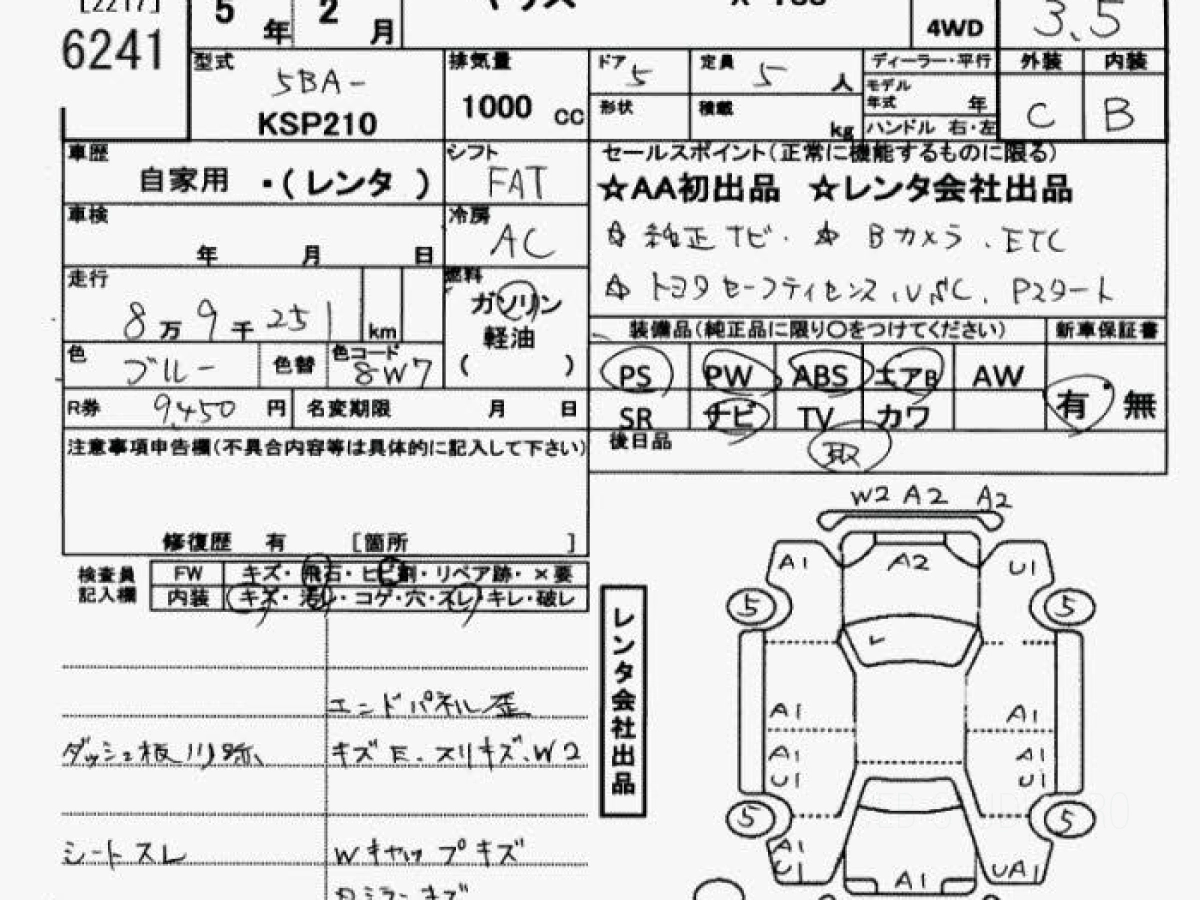 [2217]
6241
5年 2月
ヤリス
4WD
3.5
型式
5BA-
KSP210
排気量
1000 cc
ドア 5
定員 5 人
形状
積載 kg
ディーラー・平行
モデル年式 年
ハンドル 右・左
外装 内装
C B
車歴
自家用 ・(レンタ)
シフト
FAT
セールスポイント(正常に機能するものに限る)
☆AA初出品 ☆レンタ会社出品
☆ 純正ナビ. ☆ Bカメラ. ETC
☆ トヨタセーフティセンス.VSC. Pスタート
車検
年 月 日
冷房
AC
走行
8万9千251 km
燃料
ガソリン
軽油
( )
色
ブルー
色替
色コード
8W7
装備品(純正品に限り○をつけてください)
新車保証書
PS PW ABS エアB AW
有・無
SR ナビ TV カワ
R券 9,450 円
名変期限 月 日
後日品
取
注意事項申告欄(不具合内容等は具体的に記入して下さい)
修復歴 有 [箇所 ]
検査員記入欄
FW キズ・飛石・ヒビ割・リペア跡・×要
内装 キズ・汚れ・コゲ・穴・スレ・キレ・破レ
エンドパネル歪
キズE.スリキズ.W2
シートスレ
Wキャップキズ
レンタ会社出品
W2 A2 A2
A1 A2 U1
5 5
A1 A1
A1 A1
U1 U1
5 5
A1
U1 A1 UA1